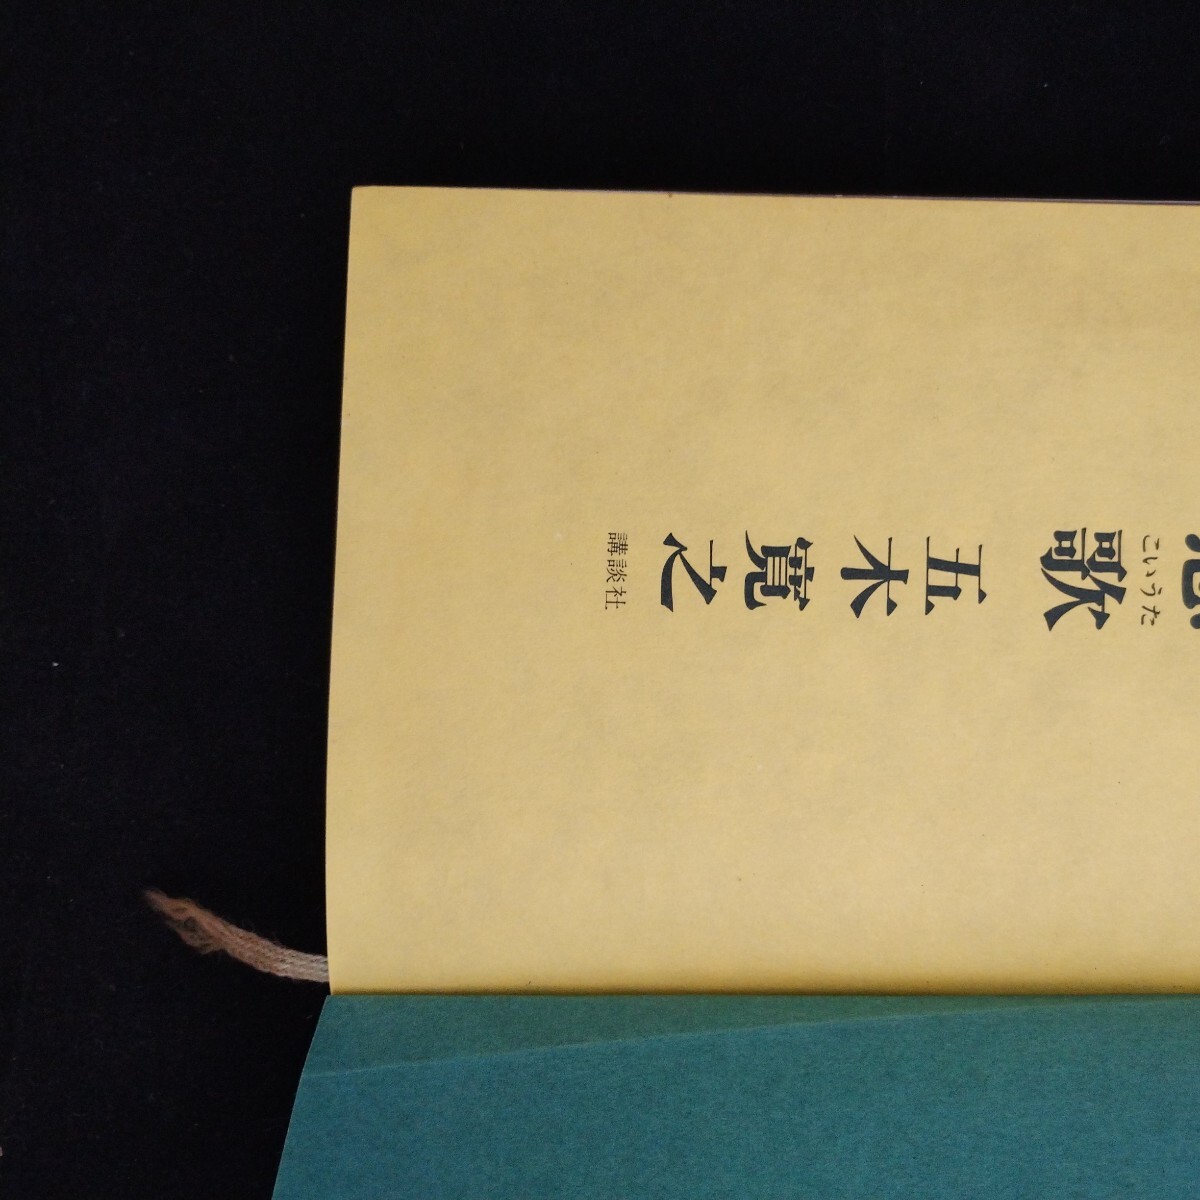 こいうた
歌
五木寛之
講談社